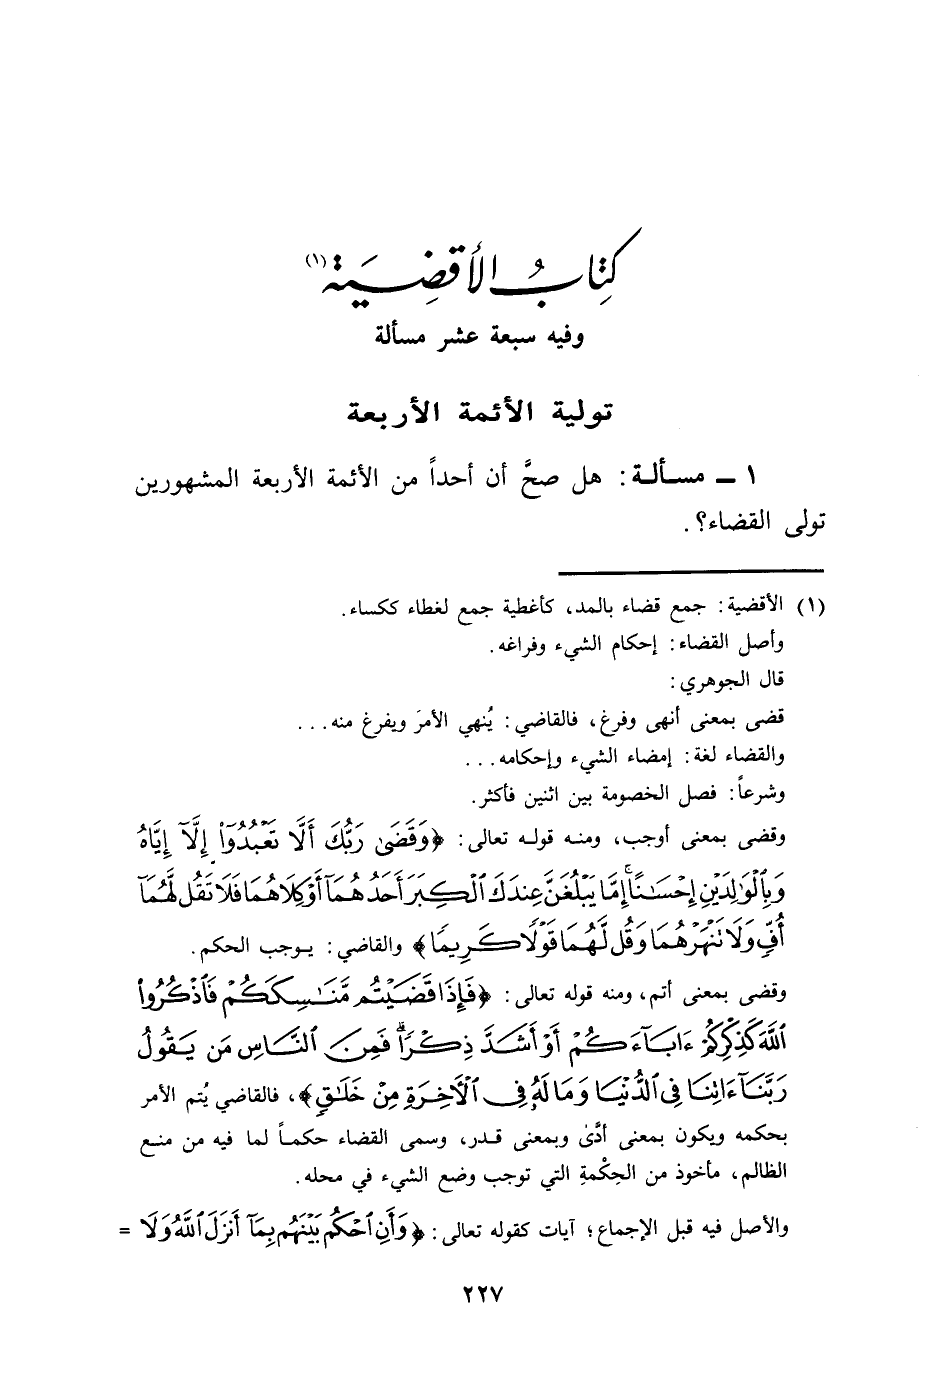 كِتَابُ الأَقضِيَة (١)
وفيه سبعة عشر مسألة
تولية الأئمة الأربعة
١ - مسألة: هل صحَّ أن أحداً من الأئمة الأربعة المشهورين
تولى القضاء؟.
(١) الأقضية: جمع قضاء بالمد، كأغطية جمع لغطاء ككساء.
وأصل القضاء: إحكام الشيء وفراغه.
قال الجوهري:
قضى بمعنى أنهى وفرغ، فالقاضي: يُنهي الأمرَ ويفرغ منه...
والقضاء لغة: إمضاء الشيء وإحكامه...
وشرعاً: فصل الخصومة بين اثنين فأكثر.
وقضى بمعنى أوجب، ومنه قوله تعالى: ﴿وَقَضَىٰ رَبُّكَ أَلَّا تَعْبُدُوٓاْ إِلَّآ إِيَّاهُ
وَبِٱلْوَٰلِدَيْنِ إِحْسَٰنًا ۚ إِمَّا يَبْلُغَنَّ عِندَكَ ٱلْكِبَرَ أَحَدُهُمَآ أَوْ كِلَاهُمَا فَلَا تَقُل لَّهُمَآ
أُفٍّ وَلَا نَنْهَرْهُمَا وَقُل لَّهُمَا قَوْلًا كَرِيمًا﴾ والقاضي: يوجب الحكم.
وقضى بمعنى أتم، ومنه قوله تعالى: ﴿فَإِذَا قَضَيْتُم مَّنَٰسِكَكُمْ فَٱذْكُرُواْ
ٱللَّهَ كَذِكْرِكُمْ ءَابَآءَكُمْ أَوْ أَشَدَّ ذِكْرًا ۗ فَمِنَ ٱلنَّاسِ مَن يَقُولُ
رَبَّنَآ ءَاتِنَا فِى ٱلدُّنْيَا وَمَا لَهُۥ فِى ٱلْآخِرَةِ مِنْ خَلَٰقٍ﴾، فالقاضي يُتم الأمر
بحكمه ويكون بمعنى أدَّىٰ وبمعنى قدر، وسمى القضاء حكماً لما فيه من منع
الظالم، مأخوذ من الحِكْمةِ التي توجب وضع الشيء في محله.
والأصل فيه قبل الإجماع؛ آيات كقوله تعالى: ﴿وَأَنِ ٱحْكُم بَيْنَهُم بِمَآ أَنزَلَ ٱللَّهُ وَلَا =
٢٢٧